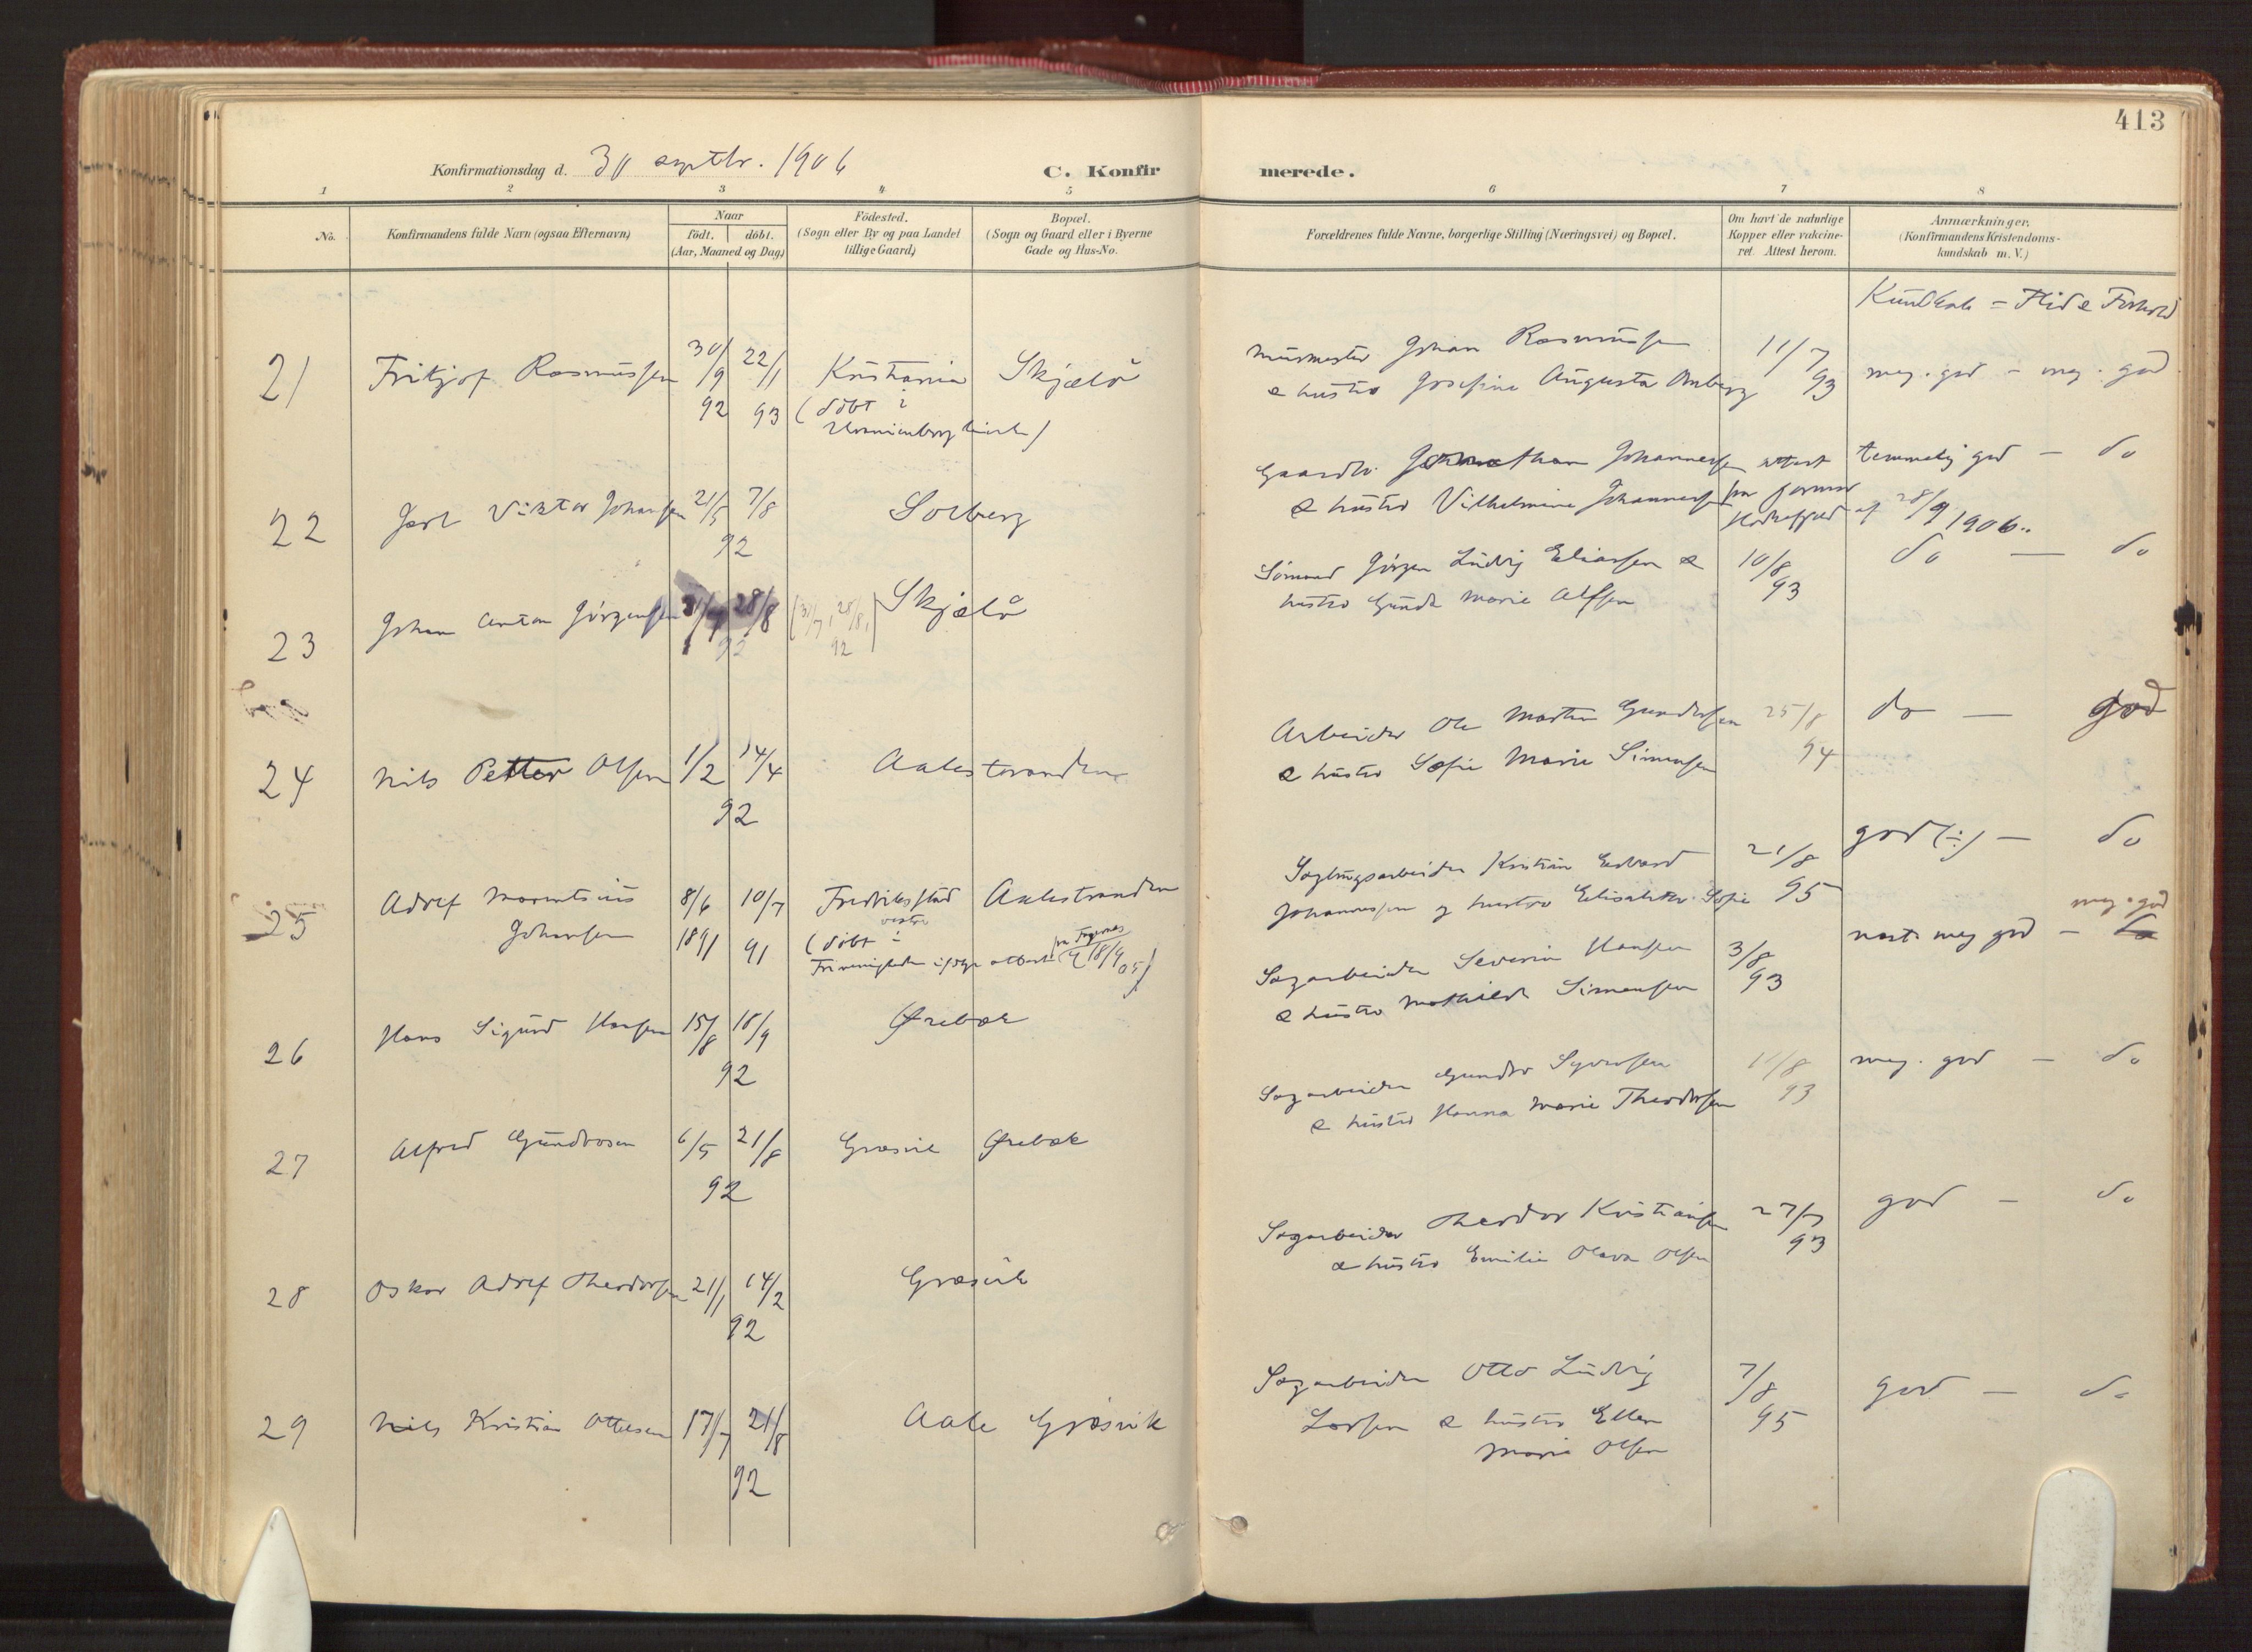 413
Konfirmationsdag d. 30 septbr. 1906
C. Konfirmerede.
1 2 3 4 5 6 7 8
No.
Konfirmandens fulde Navn (ogsaa Efternavn)
Naar
födt. döbt.
(Aar, Maaned og Dag)
Födested.
(Sogn eller By og paa Landet
tillige Gaard)
Bopæl.
(Sogn og Gaard eller i Byerne
Gade og Hus-No.
Forældrenes fulde Navne, borgerlige Stilling (Næringsvei) og Bopæl.
Om havt de naturlige
Kopper eller vakcine-
ret. Attest herom.
Anmærkninger.
(Konfirmandens Kristendoms-
kundskab m. V.)
Kundskab - Flid & Forhold
21 Fritjof Rasmussen 30/9 92 22/1 93 Kristiania Skjælö
(döbt i
Uranienborg kirke)
Murmester Johan Rasmussen
& hustro Josefine Augusta Amberg
11/7 93 meg. god - meg. god
22 Jarl Viktor Johansen 21/5 7/8 92 Solberg
Gaardbr. Johannessen
& hustro Vilhelmine Johannessen
attest fra 28/9 1906..
temmelig god - do
23 Johan Anton Jörgensen 31/7 28/8 92 (31/7, 28/8, 92) Skjælö
Sömand Jörgen Ludvig Eliassen &
hustro Gunda Marie Alfsen
10/8 93 do - do
24 Nils Petter Olsen 1/2 14/4 92 Aalestranden
Arbeider Ole Martin Gundersen
& hustro Sofie Marie Simensen
25/8 94 do - god
25 Adolf Johansen 8/6 1891 10/7 91 Fredrikstad Aalestranden
(döbt i vestre
Frimenigheden ifölge attest 18/9 05)
Kristian Edvard
Johannessen og hustro Elisabeth Sofie
21/8 95 god (÷) - do
26 Hans Sigurd Hansen 15/8 18/9 92 Ørebæk
Sagarbeider Severin Hansen
& hustro Mathilde Simensen
3/8 93 næst. meg god - meg. god
27 Alfred Gundrosen 6/5 21/8 92 Græsvik Ørebæk
Sagarbeider Gundro Syversen
& hustro Hanna Marie Theodorsen
11/8 93 meg. god - do
28 Oskar Adolf Theodorsen 21/1 14/2 92 Græsvik
Sagarbeider Theodor Kristiansen
& hustro Emilie Olava Olsen
27/7 93 god - do
29 Nils Kristian Ottesen 17/7 21/8 92 Aale Græsvik
Sagarbeider Otto Ludvig
Larsen & hustro Ellen
Marie Olsen
7/8 95 god - do